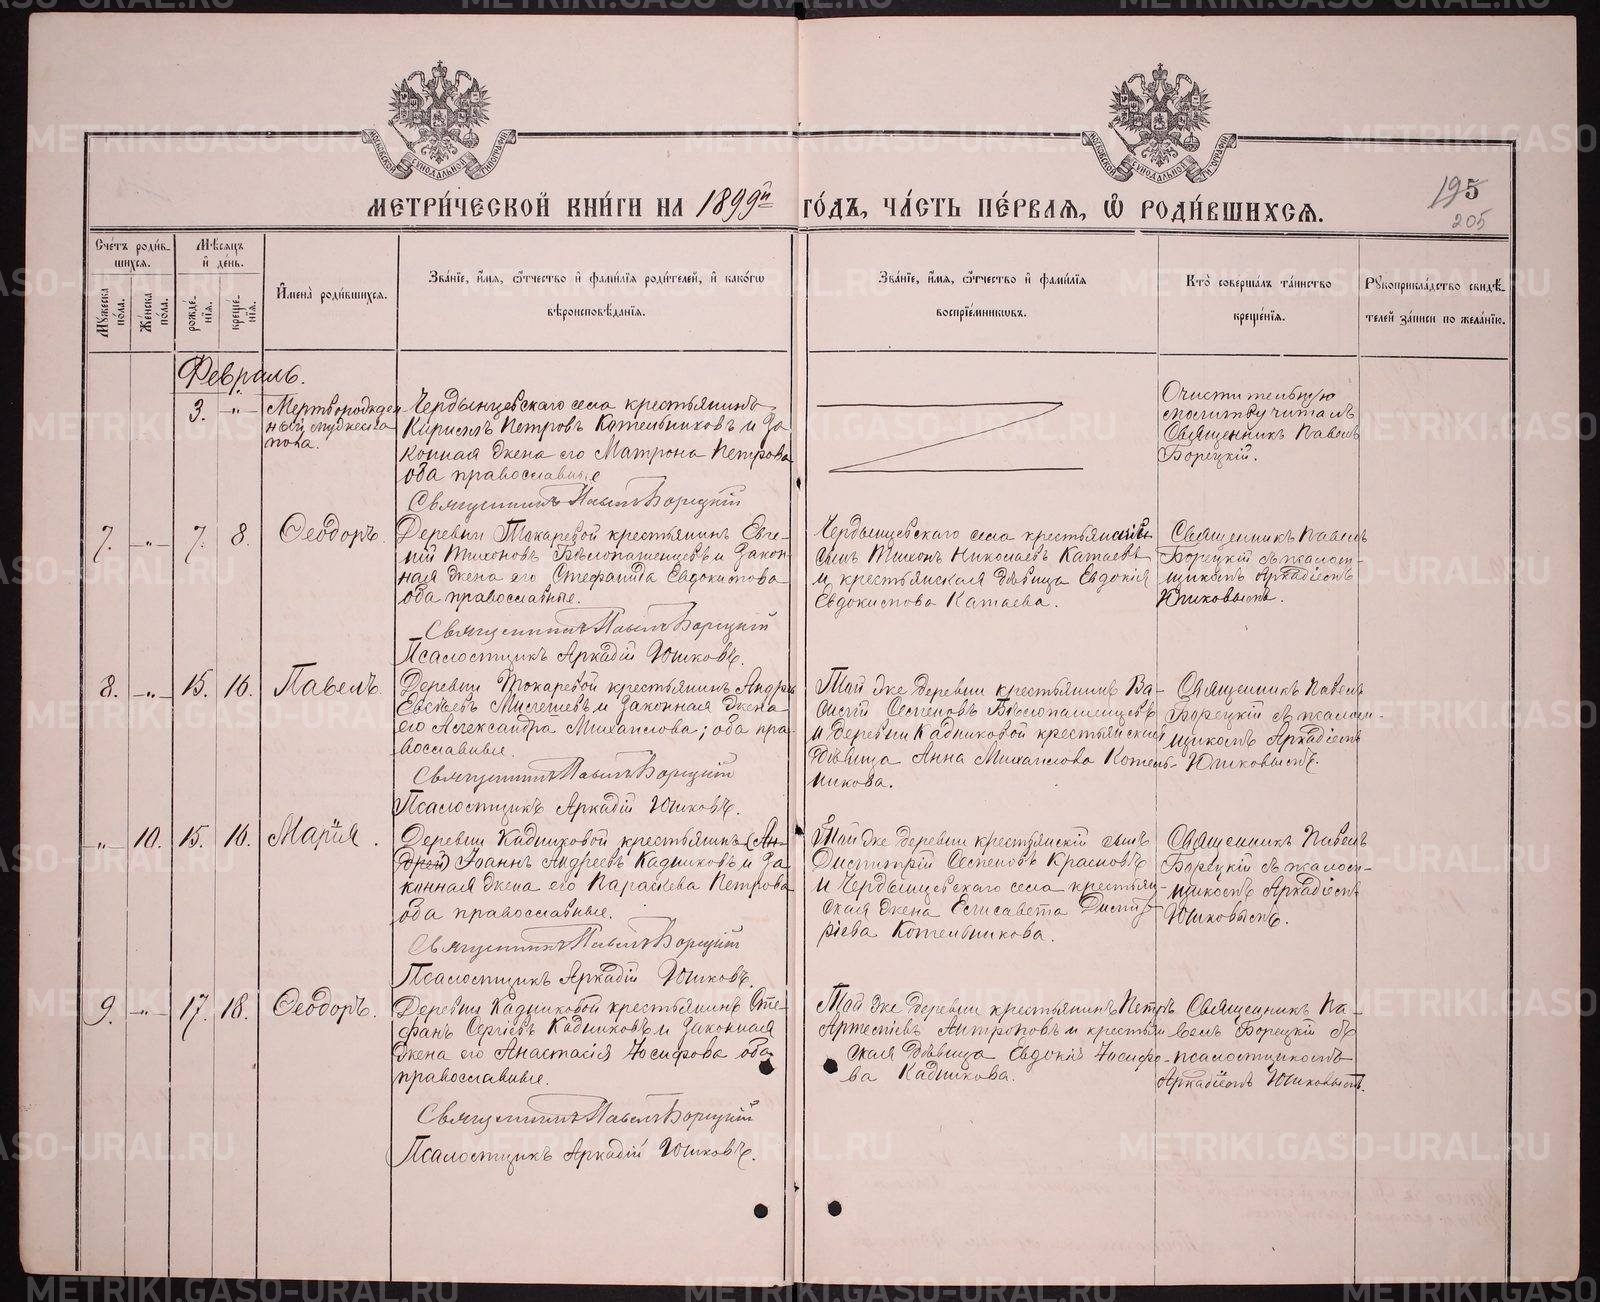 МЕТРИ́ЧЕСКОЙ КНИ́ГИ НА 1899й ГО́ДЪ, ЧА́СТЬ ПЕ́РВАЯ, Ѡ РОДИ́ВШИХСЯ.
195
205
Сче́тъ роди́в-
шихся.
Мѣ́сяцъ
и де́нь.
Му́жеска по́ла.
Же́нска по́ла.
рожде́-
нія.
креще́-
нія.
И҆мена̀ роди́вшихся.
Зва́ніе, и҆́мя, ѻ҆́тчество и҆ фами́лія роди́телей, и҆ како́гѡ
вѣроисповѣ́данія.
Зва́ніе, и҆́мя, ѻ҆́тчество и҆ фами́лія
воспріе́мниковъ.
Кто̀ соверша́лъ та́инство
креще́нія.
Рукоприкла́дство свидѣ́-
телей за́писи по жела́нію.
Февраль.
3. -"-
Мертворожден
ный мужеска
пола.
Чердынцевскаго села крестьянинъ
Кириллъ Петровъ Котельниковъ и за
конная жена его Матрона Петрова
оба православные
Священникъ Павелъ Борецкій
Очистительную
молитву читалъ
Священникъ Павелъ
Борецкій.
7. -"- 7. 8. Ѳеодоръ.
Деревни Токаревой крестьянинъ Евге-
ній Тихоновъ Бѣлопашенцевъ и закон-
ная жена его Стефанида Евдокимова
оба православные.
Священникъ Павелъ Борецкій
Псаломщикъ Аркадій Юшковъ.
Чердынцевскаго села крестьянскій
сынъ Тихонъ Николаевъ Катаевъ
и крестьянская дѣвица Евдокія
Евдокимова Катаева.
Священникъ Павелъ
Борецкій съ псалом-
щикомъ Аркадіемъ
Юшковымъ.
8. -"- 15. 16. Павелъ.
Деревни Токаревой крестьянинъ Андрей
его Александра Михаилова; оба пра-
вославные.
Священникъ Павелъ Борецкій
Псаломщикъ Аркадій Юшковъ.
Той же деревни крестьянинъ Ва-
силій Семеновъ Бѣлопашенцевъ
и деревни Кадниковой крестьянская
дѣвица Анна Михаилова Котель-
никова.
Священникъ Павелъ
Борецкій съ псалом-
щикомъ Аркадіемъ
Юшковымъ.
-"- 10. 15. 16. Марія.
Деревни Кадниковой крестьянинъ (Ан-
дрей) Іоаннъ Андреевъ Кадниковъ и за
конная жена его Параскева Петрова
оба православные.
Священникъ Павелъ Борецкій
Псаломщикъ Аркадій Юшковъ.
Той же деревни крестьянскій сынъ
Димитрій Семеновъ Красновъ
и Чердынцевскаго села крестьян-
ская жена Елисавета Димит-
ріева Котельникова.
Священникъ Павелъ
Борецкій съ псалом-
щикомъ Аркадіемъ
Юшковымъ.
9. -"- 17. 18. Ѳеодоръ.
Деревни Кадниковой крестьянинъ Сте-
фанъ Сергіевъ Кадниковъ и законная
жена его Анастасія Іосифова оба
православные.
Священникъ Павелъ Борецкій
Псаломщикъ Аркадій Юшковъ.
Той же деревни крестьянинъ Петръ
Артеміевъ Антроповъ и крестьян
ская дѣвица Евдокія Іосифо-
ва Кадникова.
Священникъ Па-
велъ Борецкій съ
псаломщикомъ
Аркадіемъ Юшковымъ.
METRIKI.GASO-URAL.RU